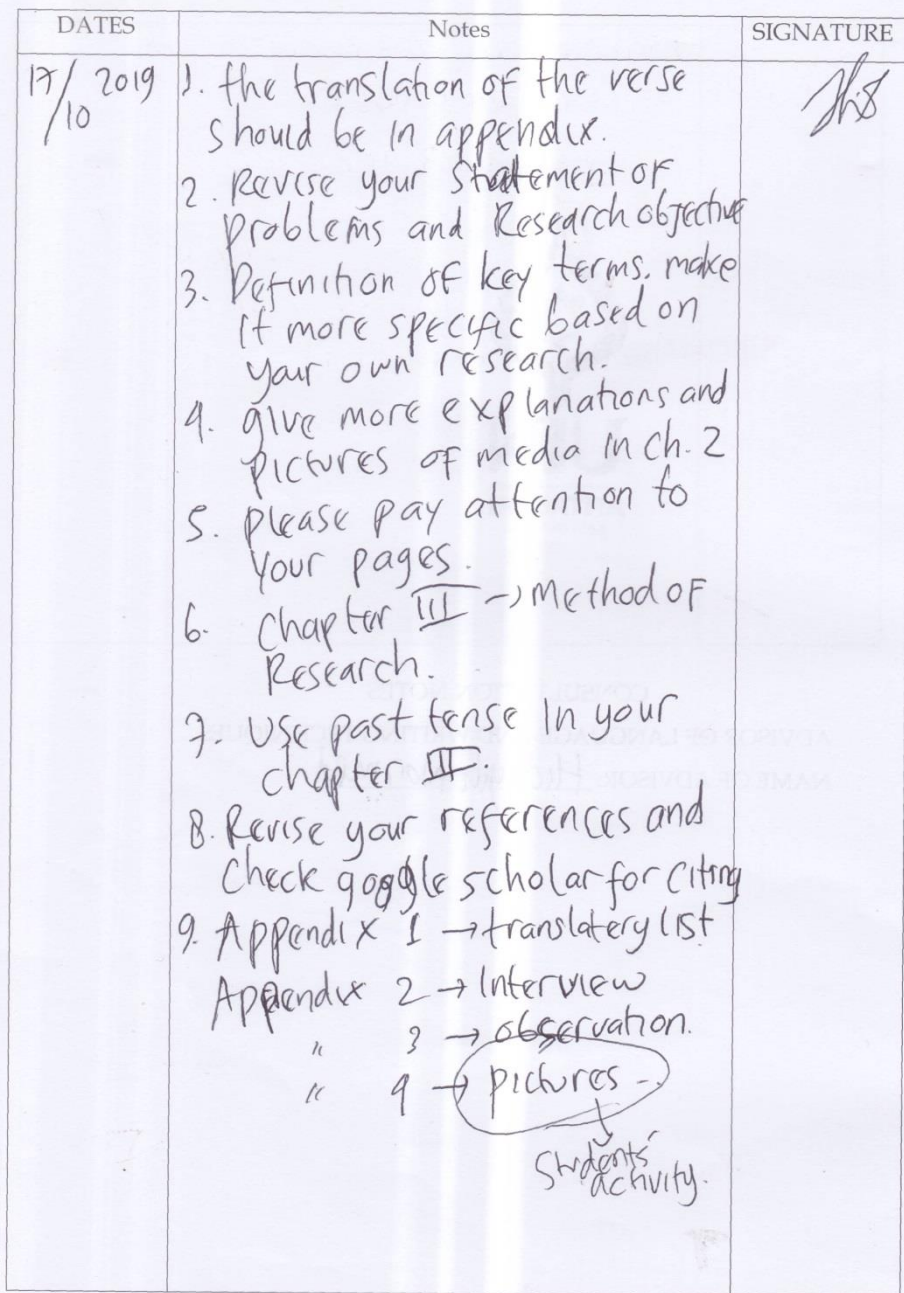 DATES Notes SIGNATURE
17/10 2019
1. the translation of the verse
should be in appendix.
2. Revise your Statement of
problems and Research objective
3. Definition of key terms. make
it more specific based on
your own research.
4. give more explanations and
pictures of media in ch. 2
5. please pay attention to
your pages.
6. Chapter III → Method of
Research.
7. Use past tense in your
chapter III.
8. Revise your references and
check google scholar for citing
9. Appendix 1 → translatery list
Appendix 2 → Interview
" 3 → observation.
" 4 → pictures
Students'
activity.